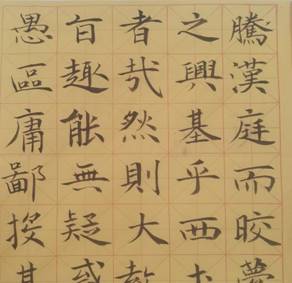 愚區庸鄙投其
旨趣能無疑惑
者哉然則大教
之興基乎西土
騰漢庭而晈夢